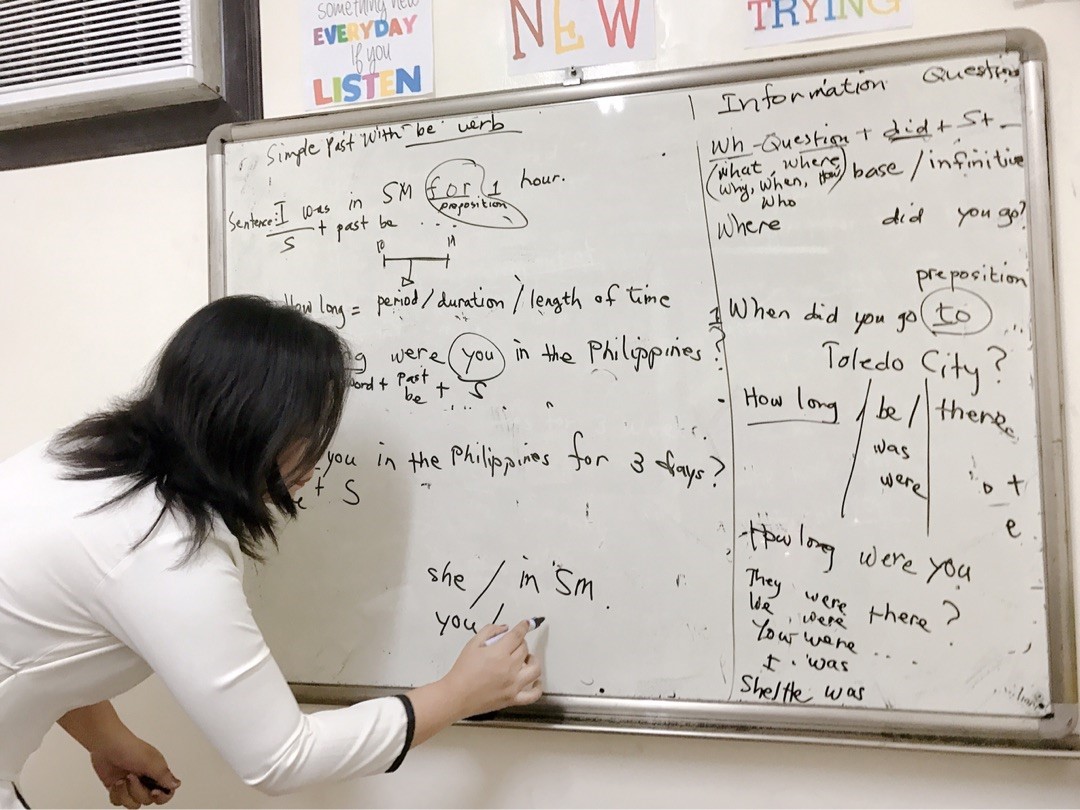 something new
EVERYDAY
If you
LISTEN
NEW
TRYING
Simple Past with be verb
Sentence: I was in SM for 1 hour.
preposition
S + past be ...
How long = period/duration/length of time
were you in the Philippines?
word + past be + S
you in the Philippines for 3 days?
+ S
she / in SM.
you /
Information Question
Wh-Question + did + S +
(what, where, base/infinitive
why, when, How)
who
Where did you go?
preposition
When did you go to ...
Toledo City?
How long / be / there
was
were
+
e
How long were you
there?
They were
We were
You were ...
I was
She/He was